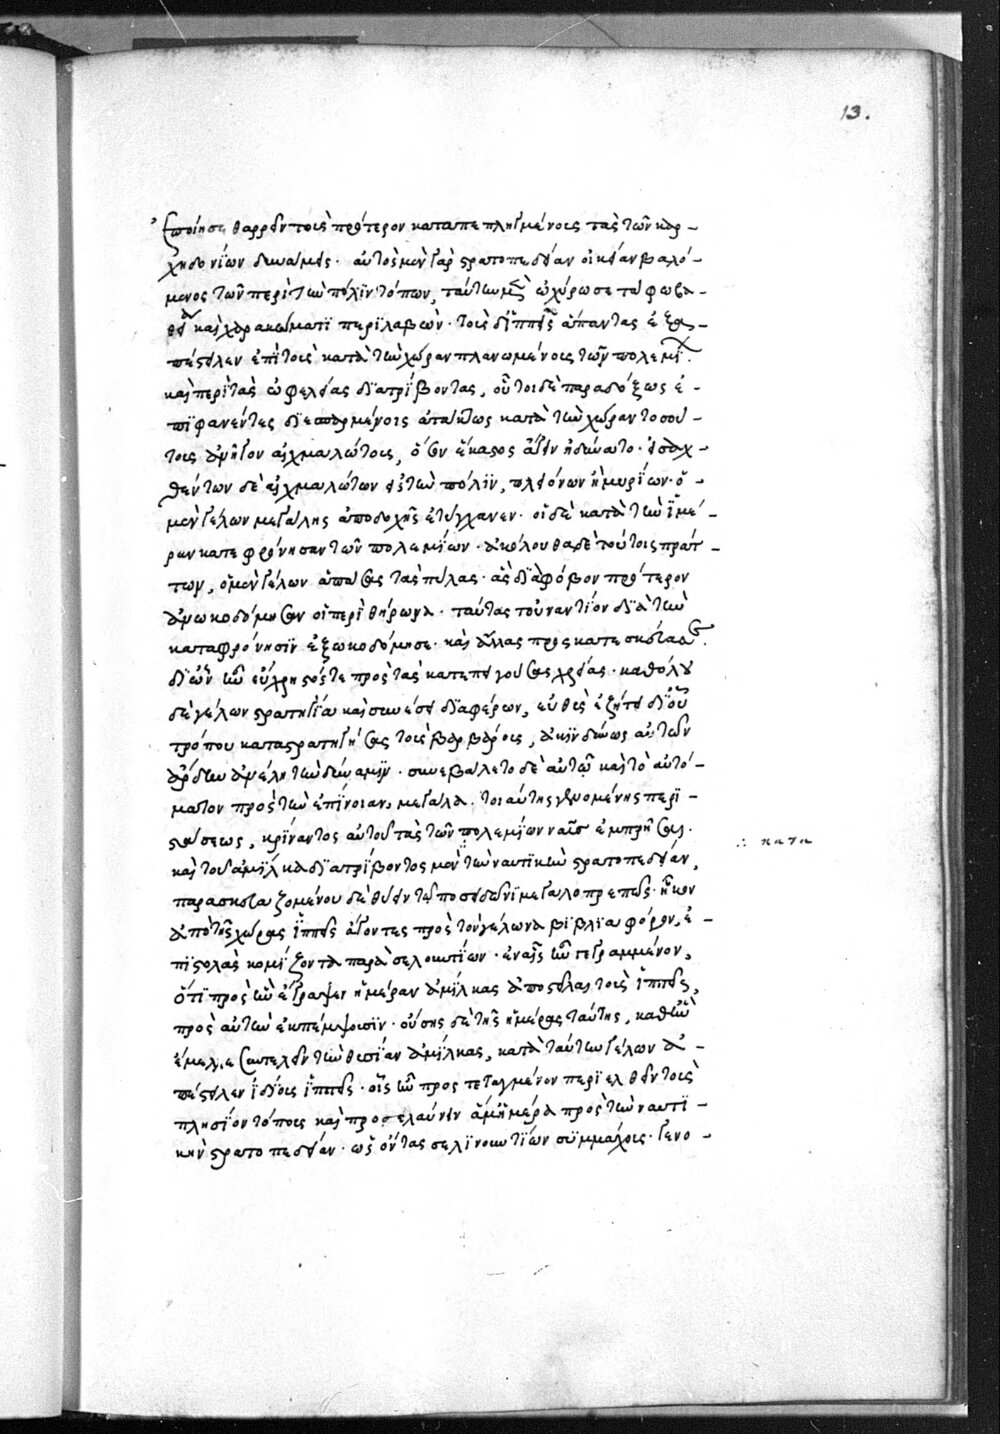 13.
ἐποίησε θαρρεῖν τοὺς πρότερον καταπεπληγμένους τὰς τῶν καρ-
χηδονίων δυνάμεις. αὐτὸς μὲν γὰρ στρατοπεδείαν οἰκείαν βαλό-
μενος τῶν περὶ τὴν πόλιν τόπων, ταύτην μὲν ὠχύρωσε τάφρω βα-
θεία καὶ χαρακώματι περιλαβών. τοὺς δ' ἱππεῖς ἅπαντας ἐξα-
πέστειλεν ἐπὶ τοὺς κατὰ τὴν χώραν πλανωμένους τῶν πολεμί.
καὶ περὶ τὰς ὠφελείας διατρίβοντας, οὗτοι δὲ παραδόξως ἐ-
πιφανέντες διεσπαρμένοις ἀτάκτως κατὰ τὴν χώραν τοσού-
τους ἀνῆγον αἰχμαλώτους, ὅσους ἕκαστος ἄγειν ἠδύνατο. εἰσαχ-
θέντων δὲ αἰχμαλώτων εἰς τὴν πόλιν, πλειόνων ἢ μυρίων. ὁ
μὲν γέλων μεγάλης ἀποδοχῆς ἐτύγχανεν. οἱ δὲ κατὰ τὴν ἱμέ-
ραν κατεφρόνησαν τῶν πολεμίων. ἀκόλουθα δὲ τούτοις πράτ-
των, ὁ μὲν γέλων ἁπάσας τὰς πύλας. ἃς διὰ φόβον πρότερον
ἀνωκοδόμησαν οἱ περὶ θήρωνα. ταύτας τοὐναντίον διὰ τὴν
καταφρόνησιν ἐξωκοδόμησε. καὶ ἄλλας προσκατεσκεύασε.
δι' ὧν ἦν εὐχρηστεῖσθαι πρὸς τὰς κατεπειγούσας χρείας. καθόλου
δὲ γέλων στρατηγία καὶ συνέσει διαφέρων, εὐθὺς ἐζήτει δι' οὗ
τρόπου καταστρατηγήσας τοὺς βαρβάρους, ἀκινδύνως αὐτῶν
ἄρδην ἀνέλη τὴν δύναμιν. συνεβάλετο δὲ αὐτῶ καὶ τὸ αὐτό-
ματον πρὸς τὴν ἐπίνοιαν, μεγάλα. τοιαύτης γενομένης περι-
στάσεως, κρίναντος αὐτοῦ τὰς τῶν πολεμίων ναῦς ἐμπρῆσαι.
καὶ τοῦ ἀμίλκα διατρίβοντος μὲν τὴν ναυτικὴν στρατοπεδείαν,
∴ κατα
παρασκευαζομένου δὲ θύειν τῶ ποσειδῶνι μεγαλοπρεπῶς. ἧκον
ἀπὸ τῆς χώρας ἱππεῖς ἄγοντες πρὸς τὸν γέλωνα βιβλιαφόρον, ἐ-
πιστολὰς κομίζοντα παρὰ σελουντίων. ἐν αἷς ἦν γεγραμμένον,
ὅτι πρὸς ἣν ἔγραψεν ἡμέραν ἀμίλκας ἀποστεῖλαι τοὺς ἱππεῖς,
πρὸς αὐτὴν ἐκπέμψουσιν. οὔσης δὲ τῆς ἡμέρας ταύτης, καθ' ἣν
ἔμελλε συντελεῖν τὴν θυσίαν ἀμίλκας, κατὰ ταύτην γέλων ἀ-
πέστειλεν ἰδίους ἱππεῖς. οἷς ἦν προστεταγμένον περιελθεῖν τοὺς
πλησίον τόπους καὶ προσελαύνειν ἅμ' ἡμέρα πρὸς τὴν ναυτι-
κὴν στρατοπεδείαν. ὡς ὄντας σελινουντίων συμμάχους. γενο-